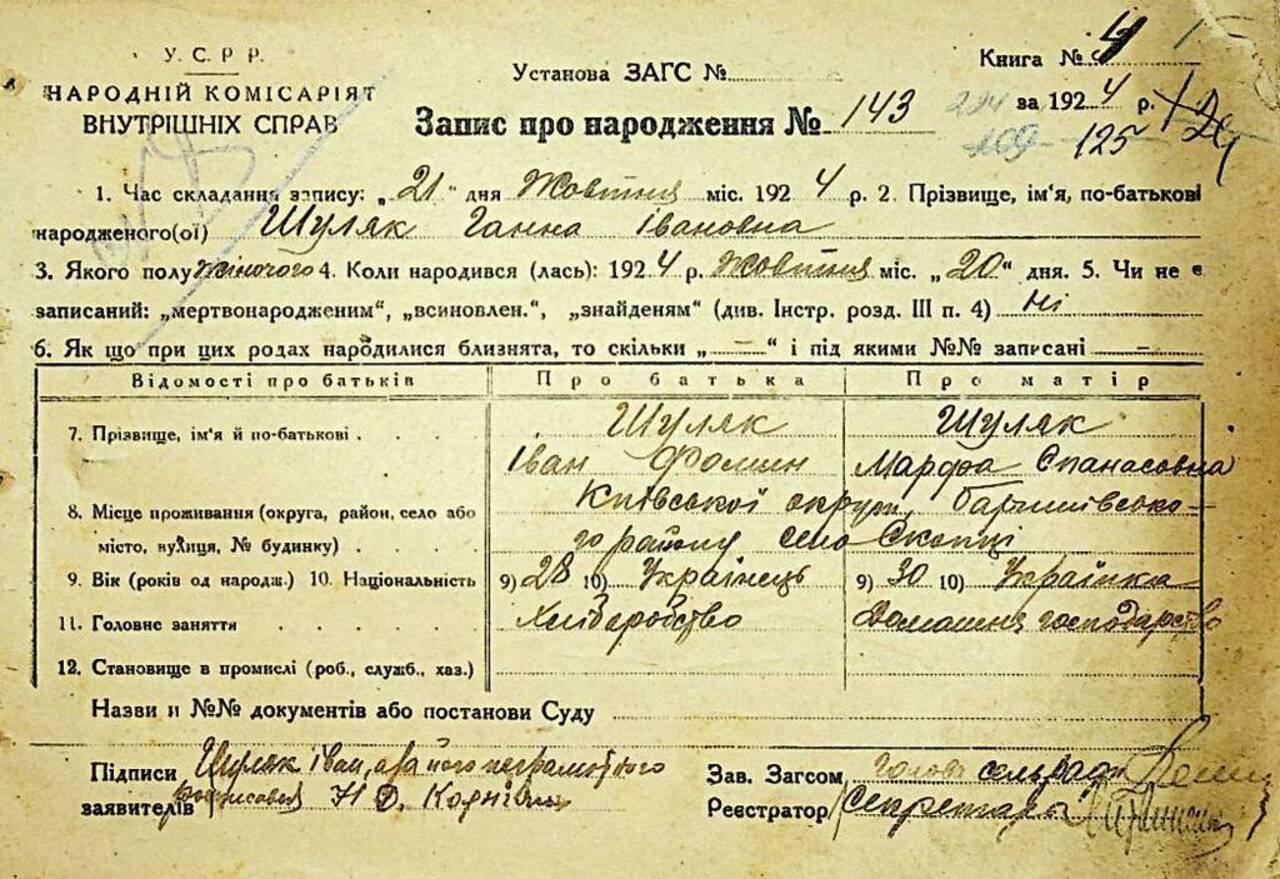 У. С. Р. Р.
НАРОДНІЙ КОМІСАРІЯТ
ВНУТРІШНІХ СПРАВ
Установа ЗАГС №
Книга № 4
Запис про народження № 143
за 1924 р.
109 125
1. Час складання запису: „21“ дня Жовтня міс. 1924 р. 2. Прізвище, ім'я, по-батькові
народженого(ої) Шуляк Ганна Івановна
3. Якого полу жіночого 4. Коли народився (лась): 1924 р. Жовтня міс. „20“ дня. 5. Чи не є
записаний: „мертвонародженим“, „всиновлен.“, „знайденям“ (див. Інстр. розд. III п. 4) ні
6. Як що при цих родах народилися близнята, то скільки „—“ і під якими №№ записані —
Відомості про батьків Про батька Про матір
7. Прізвище, ім'я й по-батькові Шуляк Шуляк
Іван Фомин Марфа Спанасовна
8. Місце проживання (округа, район, село або Київської округи, Баришівсько-
місто, вулиця, № будинку) го району, село Скопці
9. Вік (років од народж.) 10. Національність 9) 28 10) Українець 9) 30 10) Українка
11. Головне заняття Хліборобство Домашня господарство
12. Становище в промислі (роб., служб., хаз.)
Назви й №№ документів або постанови Суду
Підписи Шуляк Іван, а за його неграмотного
заявителів росписовся Н. Д.
Зав. Загсом Голова сельради
Реєстратор Секретарь